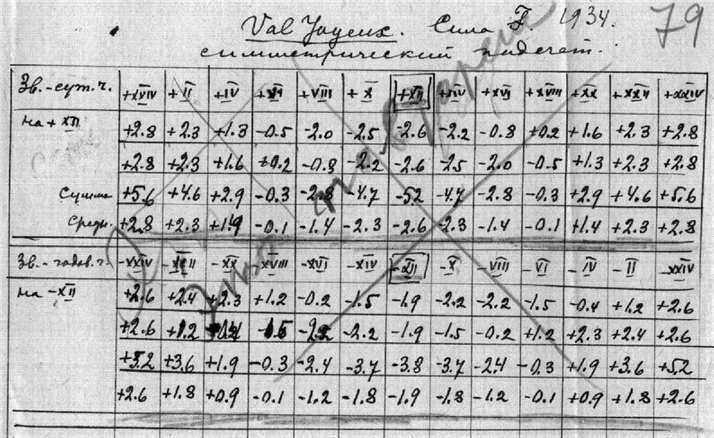 Val Joyeux. Сила F. 1934. 79
симметрический подсчет.
Зв.-сут. ч. +XXIV +II +IV +VI +VIII +X +XII +XIV +XVI +XVIII +XX +XXII +XXIV
на + XII +2.8 +2.3 +1.3 -0.5 -2.0 -2.5 -2.6 -2.2 -0.8 +0.2 +1.6 +2.3 +2.8
+2.8 +2.3 +1.6 +0.2 -0.8 -2.2 -2.6 -2.5 -2.0 -0.5 +1.3 +2.3 +2.8
Сумма +5.6 +4.6 +2.9 -0.3 -2.8 -4.7 -52 -4.7 -2.8 -0.3 +2.9 +4.6 +5.6
Средн. +2.8 +2.3 +1.4 -0.1 -1.4 -2.3 -2.6 -2.3 -1.4 -0.1 +1.4 +2.3 +2.8
Зв.-годов. ч. -XXIV -XXII -XX -XVIII -XVI -XIV -XII -X -VIII -VI -IV -II XXIV
на -XII +2.6 +2.4 +2.3 +1.2 -0.2 -1.5 -1.9 -2.2 -2.2 -1.5 -0.4 +1.2 +2.6
+2.6 +1.2 -1.5 -2.2 -2.2 -1.9 -1.5 -0.2 +1.2 +2.3 +2.4 +2.6
+5.2 +3.6 +1.9 -0.3 -2.4 -3.7 -3.8 -3.7 -24 -0.3 +1.9 +3.6 +5.2
+2.6 +1.8 +0.9 -0.1 -1.2 -1.8 -1.9 -1.8 -1.2 -0.1 +0.9 +1.8 +2.6